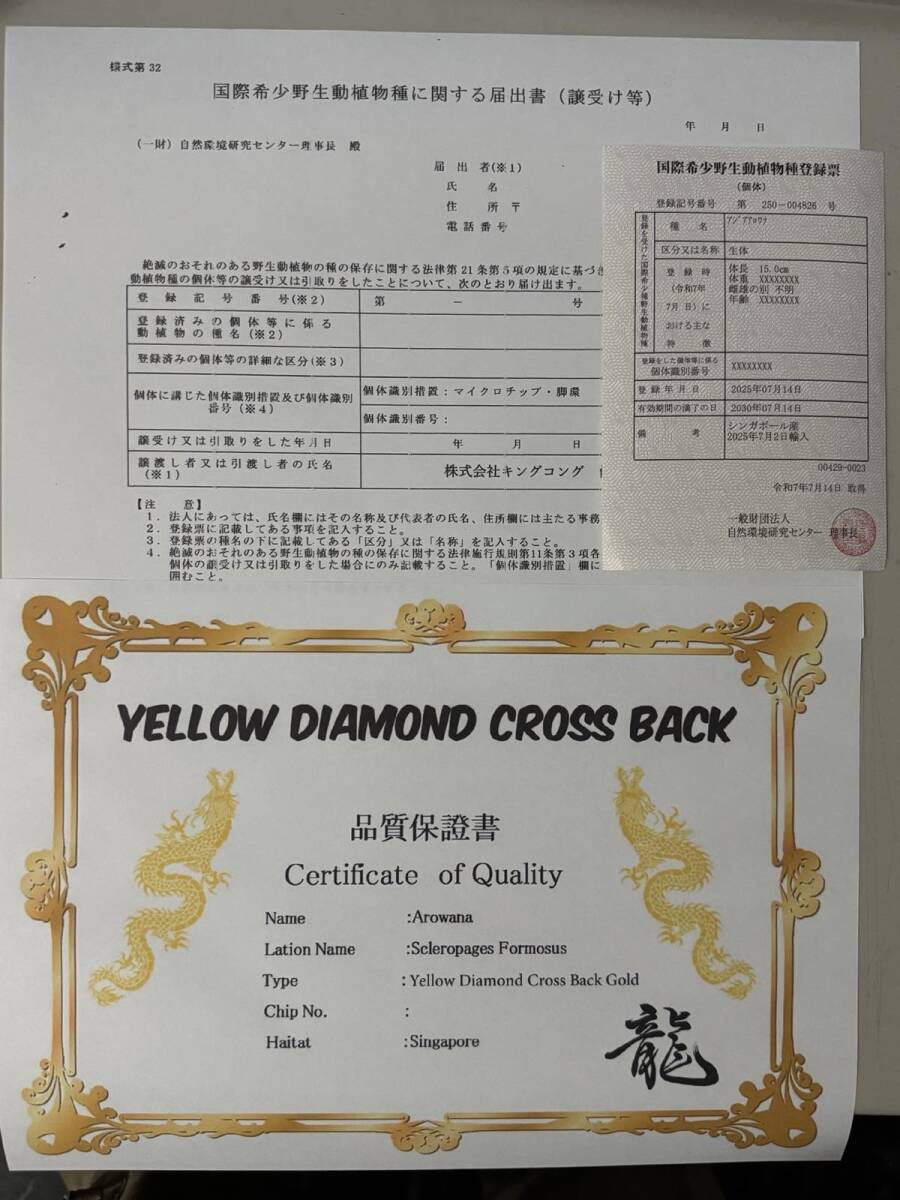 様式第 32
国際希少野生動植物種に関する届出書（譲受け等）
年　月　日
（一財）自然環境研究センター理事長　殿
届　出　者(※1)
氏　　名
住　　所　〒
電話番号
絶滅のおそれのある野生動植物の種の保存に関する法律第21条第5項の規定に基づき
動植物種の個体等の譲受け又は引取りをしたことについて、次のとおり届け出ます。
登　録　記　号　番　号(※2)　第　－　号
登録済みの個体等に係る
動植物の種名（※2）
登録済みの個体等の詳細な区分(※3)
個体に講じた個体識別措置及び個体識別
番号（※4）
個体識別措置：マイクロチップ・脚環
個体識別番号：
譲受け又は引取りをした年月日　年　月　日
譲渡し者又は引渡し者の氏名
（※1）
株式会社キングコング
【注　意】
1．法人にあっては、氏名欄にはその名称及び代表者の氏名、住所欄には主たる事務
2．登録票に記載してある事項を記入すること。
3．登録票の種名の下に記載してある「区分」又は「名称」を記入すること。
4．絶滅のおそれのある野生動植物の種の保存に関する法律施行規則第11条第3項各
個体の譲受け又は引取りをした場合にのみ記載すること。「個体識別措置」欄に
囲むこと。
国際希少野生動植物種登録票
（個体）
登録記号番号　第　250－004826　号
登録を受けた国際希少野生動植物種
種　名　ｱｼﾞｱｱﾛﾜﾅ
区分又は名称　生体
登　録　時
（令和7年
7月 日）に
おける主な
特　　徴
体長　15.0cm
体重　XXXXXXXX
雌雄の別 不明
年齢　XXXXXXXX
登録をした個体等に係る
個体識別番号　XXXXXXXX
登 録 年 月 日　2025年07月14日
有効期間の満了の日　2030年07月14日
備　　考　シンガポール産
2025年7月2日輸入
00429-0023
令和7年7月14日 取得
一般財団法人
自然環境研究センター 理事長
YELLOW DIAMOND CROSS BACK
品質保證書
Certificate of Quality
Name :Arowana
Lation Name :Scleropages Formosus
Type : Yellow Diamond Cross Back Gold
Chip No. :
Haitat :Singapore
龍